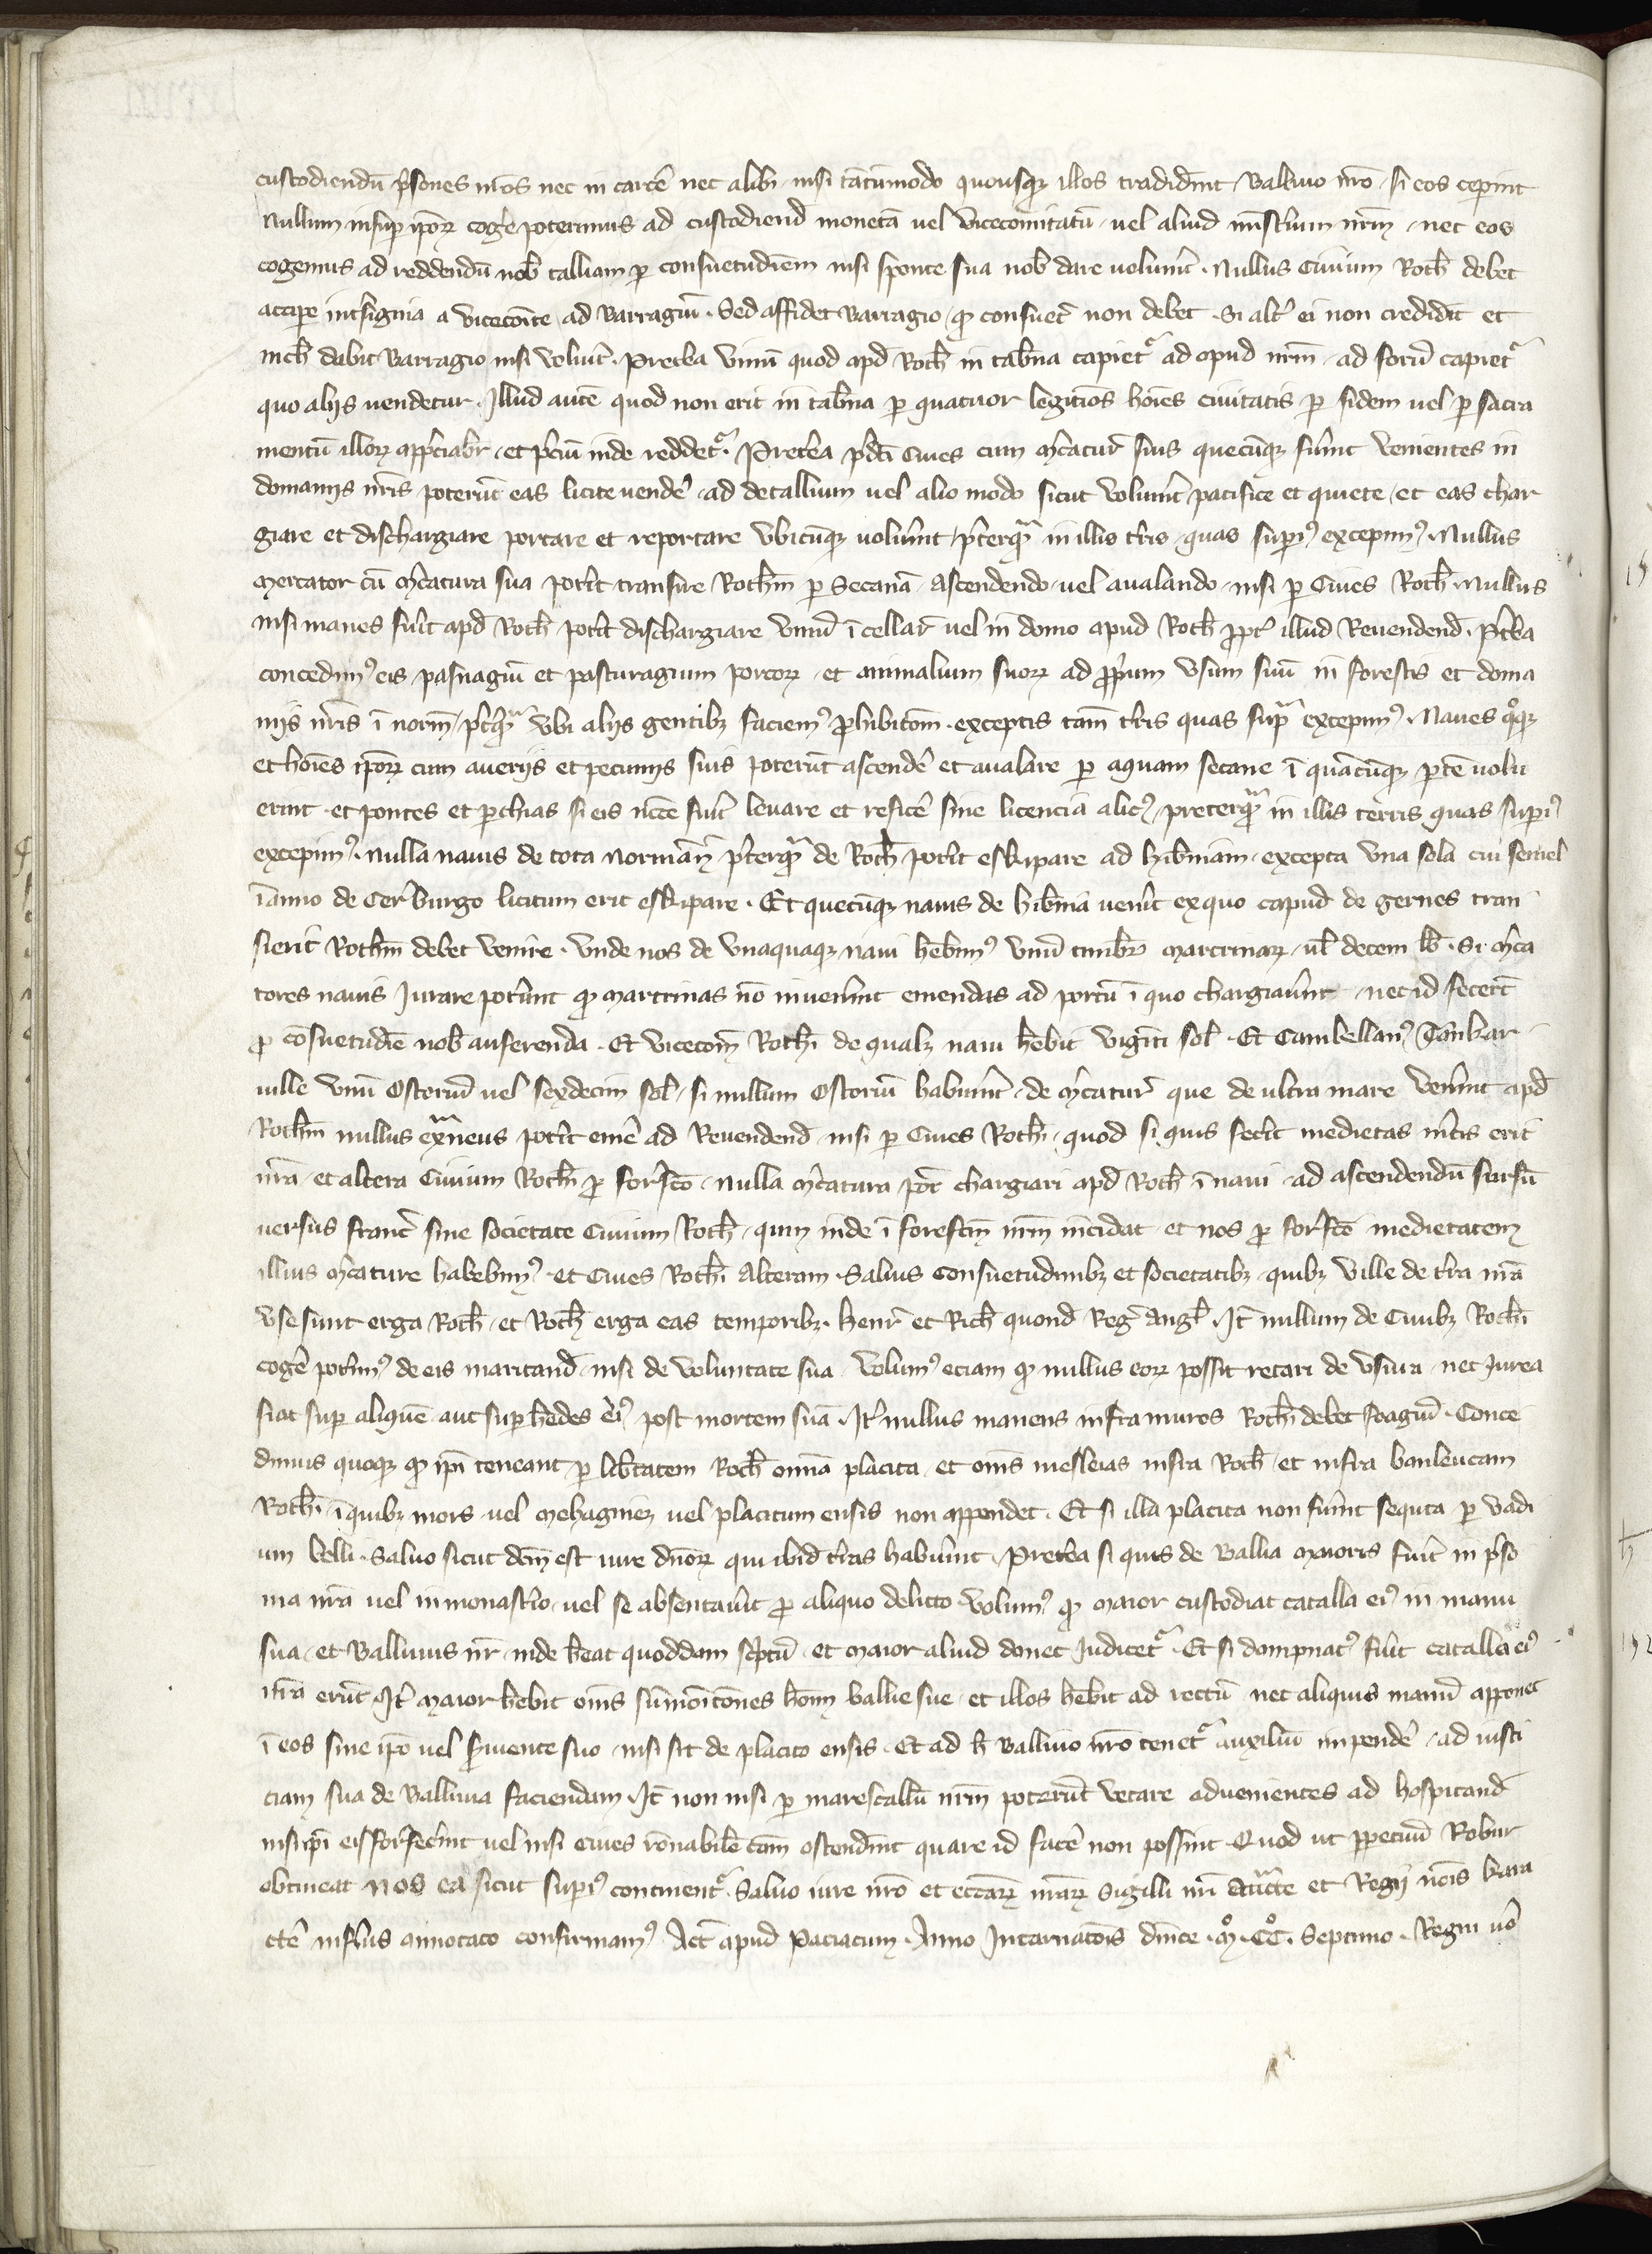 custodiendū p̄sones nr̄os nec in carcē nec alibi nisi tātūmodo quousqꝫ illos tradidīnt Ballivo nr̄o si eos cepīnt
Nullum insup̄ ip̄orꝫ cogē poterimus ad custodiend̄ monetā vel vicecomitatū vel aliud mīst̄ium nr̄m nec eos
cogemus ad reddendū nob̄ talliam ꝑ consuetudiem nisi sponte sua nob̄ dare voluīnt . Nullus Civium Roth̄ debet
accipe intsignia a vicecoīte ad Barragiū . Sed affidet Barragio qꝫ consuet̄ non debet . Si alt̄ ei non credidīt et
nich̄ dabit Barragio nisi voluīt . Pretea vinū quod apd̄ Roth̄ in tab̄na capiet᷑ ad opud nr̄m ad forū capiet᷑
quo aliis vendetur . Illud autē quod non erit in tab̄na ꝑ quatuor legitīos hoīes civitatis ꝑ fidem vel ꝑ sacra
mentū illorꝫ app̄ciabr̄ et p̄ciū inde reddet᷑ . Pretea p̄dc̄i Cives cum m̄catur̄ suis quecūqꝫ fuīnt venientes in
domaniis nr̄is poterūt eas licite vendē ad detallium vel alio modo sicut voluīnt pacifice et quiete et eas char
giare et dischargiare portare et reportare ubicūqꝫ voluīnt p̄terqᷓ in illis tr̄is quas supiꝰ excepimꝰ . Nullus
Mercator cū m̄catura sua pot̄it transire Rothm̄ ꝑ Secanā ascendendo vel avalando nisi ꝑ Cives Roth̄ . Nullus
nisi manēs fuīt apd̄ Roth̄ pot̄it dischargiare vinū ī cellar̄ vel in domo apud Roth̄ ꝓpt̄ illud Revendend̄ . P̄tea
concedimꝰ eis pasnagiū et pasturagium porcorꝫ et animalium suorꝫ ad ꝓpium usum suū in forestis et doma
niis nr̄is ī norm̄ p̄tqᷓ ubi aliis gentibꝫ faciemꝰ ꝓhibitōm . exceptis tam̄ tr̄is quas supᷓ excepimꝰ . Naves qͦqꝫ
et hoīes ip̄orꝫ cum averiis et pecuniis suis poterūt ascendē et avalare ꝑ aquam secane ī quācūqꝫ ꝑtē volu
erint et pontes et ꝑchias si eis nc̄ce fuīt levare et reficē sine licencia alicꝰ preterqᷓ in illis terris quas supiꝰ
excepimꝰ . Nulla navis de tota Normāñ p̄terqᷓ de Roth̄ pot̄it eskipare ad Hib̄niam . excepta una sola cui semel
ī anno de Cer̄burgo licitum erit eskipare . Et quecūqꝫ navis de hib̄nia venīt ex quo capud de gernes tran
sierit Rothm̄ debet venire . Unde nos de unaquaqꝫ navi heb̄imꝰ unū timbr̄ Martrinarꝫ ul̄ decem lb̄ . Si m̄ca
tores navis Jurare pot̄unt qꝫ martrinas nō invenīnt emendas ad portū ī quo chargiav̄unt nec id fecer̄t
ꝓ cōsuetudīe nob̄ auferenda . Et vicecom̄ Roth̄i de qualꝫ navi heb̄it viginti sol̄ . Et Cambellanꝰ Tankar
ville unū Ostoriū vel sexdecim sol̄ si nullum Ostoriū habuīnt . de m̄catur̄ que de ultra mare venīnt apd̄
Rothm̄ nullus exᷓneus pot̄it emē ad Revendend̄ nisi ꝑ Cives Roth̄i . quod si quis fecīt medietas m̄cis erit
nr̄a et altera Civium Roth̄i ꝓ for̄fc̄o . Nulla m̄catura pot̄ chargiari apd̄ Roth̄ ī navi ad ascendendū sursū
versus franc̄ sine societate Civium Roth̄ . quin inde ī forefc̄m nr̄m incidat et nos ꝓ for̄fc̄o medietatem
illius m̄cature habebimꝰ et Cives Roth̄i Alteram . Salvis consuetudinibꝫ et societatibꝫ quibꝫ ville de tr̄a nr̄a
use sunt erga Roth̄ et Roth̄ erga eas temporibꝫ . Henr̄ et Rich̄ quond̄ Reḡ Angl̄ . It̄ nullum de Civibꝫ Roth̄i
cogē pot̄imꝰ de eis maritand̄ nisi de voluntate sua . Volumꝰ eciam qꝫ nullus eorꝫ possit retari de usura . nec Jurea
fiat sup̄ aliquē aut sup̄ hedes eiꝰ post mortem suā . It̄ nullus manens infra muros Roth̄i debet foagiū . Conce
dimus quoqꝫ qꝫ ip̄i teneant ꝑ lib̄tatem Roth̄ omīa placita et om̄s mesleias infra Roth̄ et infra banleucam
Roth̄i . ī quibꝫ mors vel Mehagniez vel placitum ensis non appendet . Et si illa placita non fuīnt sequta ꝑ vadi
um belli . Salvo sicut dc̄m est iure dn̄orꝫ qui ibid̄ tr̄as habuīnt . Pretea si quis de Ballia Maioris fuīt in p̄so
nia nr̄a vel in monast̄io . vel se absentav̄it ꝓ aliquo delicto volumꝰ qꝫ maior custodiat catalla eiꝰ in manu
sua et Ballivus nr̄ inde h̄eat quoddam sc̄ptū et maior aliud donec Judicet᷑ . Et si dompnatꝰ fuīt catalla eiꝰ
nr̄a erūt . It̄ Maior heb̄it om̄s sūmoītōnes hoīm ballie sue et illos heb̄it ad rectū nec aliquis manū apponet
ī eos sine ip̄o vel s̄viente suo . nisi sit de placito ensis . Et ad h̄ Ballivo nr̄o tenet᷑ auxiliū impendē ad iusti
ciam sua de Balliva faciendam . It̄ non nisi ꝑ marescallū nr̄m poterūt vetare advenientes ad hospitand̄
nisi ip̄i eis for̄fecīnt vel nisi cives rōnabilē cām ostendīnt quare id facē non possint . Quod ut ꝑpetuū Robur
obtineat nos ea sicut supiꝰ continent᷑ . Salvo iure nr̄o et ecc̄arꝫ nr̄arꝫ sigilli nr̄i auc̄te et Regii noīs kara
ctē infīus annotato confirmamꝰ . Act̄ apud Paciacum . Anno Incarnatōis dn̄ice . Mͦ . CCͦ . Septimo . Regni vō